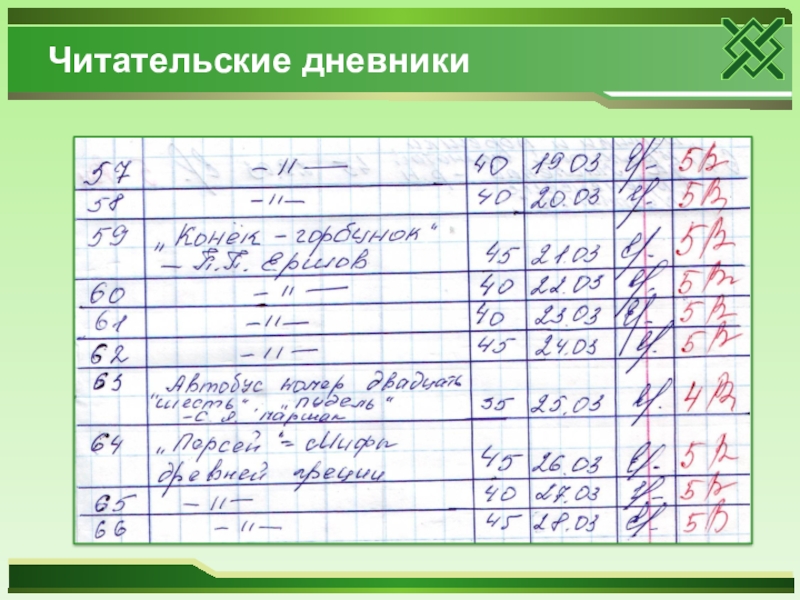 Читательские дневники
57 – 〃 – 40 19.03 5В
58 – 〃 – 40 20.03 5В
59 „Конёк – горбунок“
– П.П. Ершов 45 21.03 5В
60 – 〃 – 40 22.03 5В
61 – 〃 – 40 23.03 5В
62 – 〃 – 45 24.03 5В
63 Автобус номер двадцать
"шесть" „пудель“
– С. Я. Маршак 35 25.03 4В
64 „Персей“ = Мифы
древней греции 45 26.03 5В
65 – 〃 – 40 27.03 5В
66 – 〃 – 45 28.03 5В